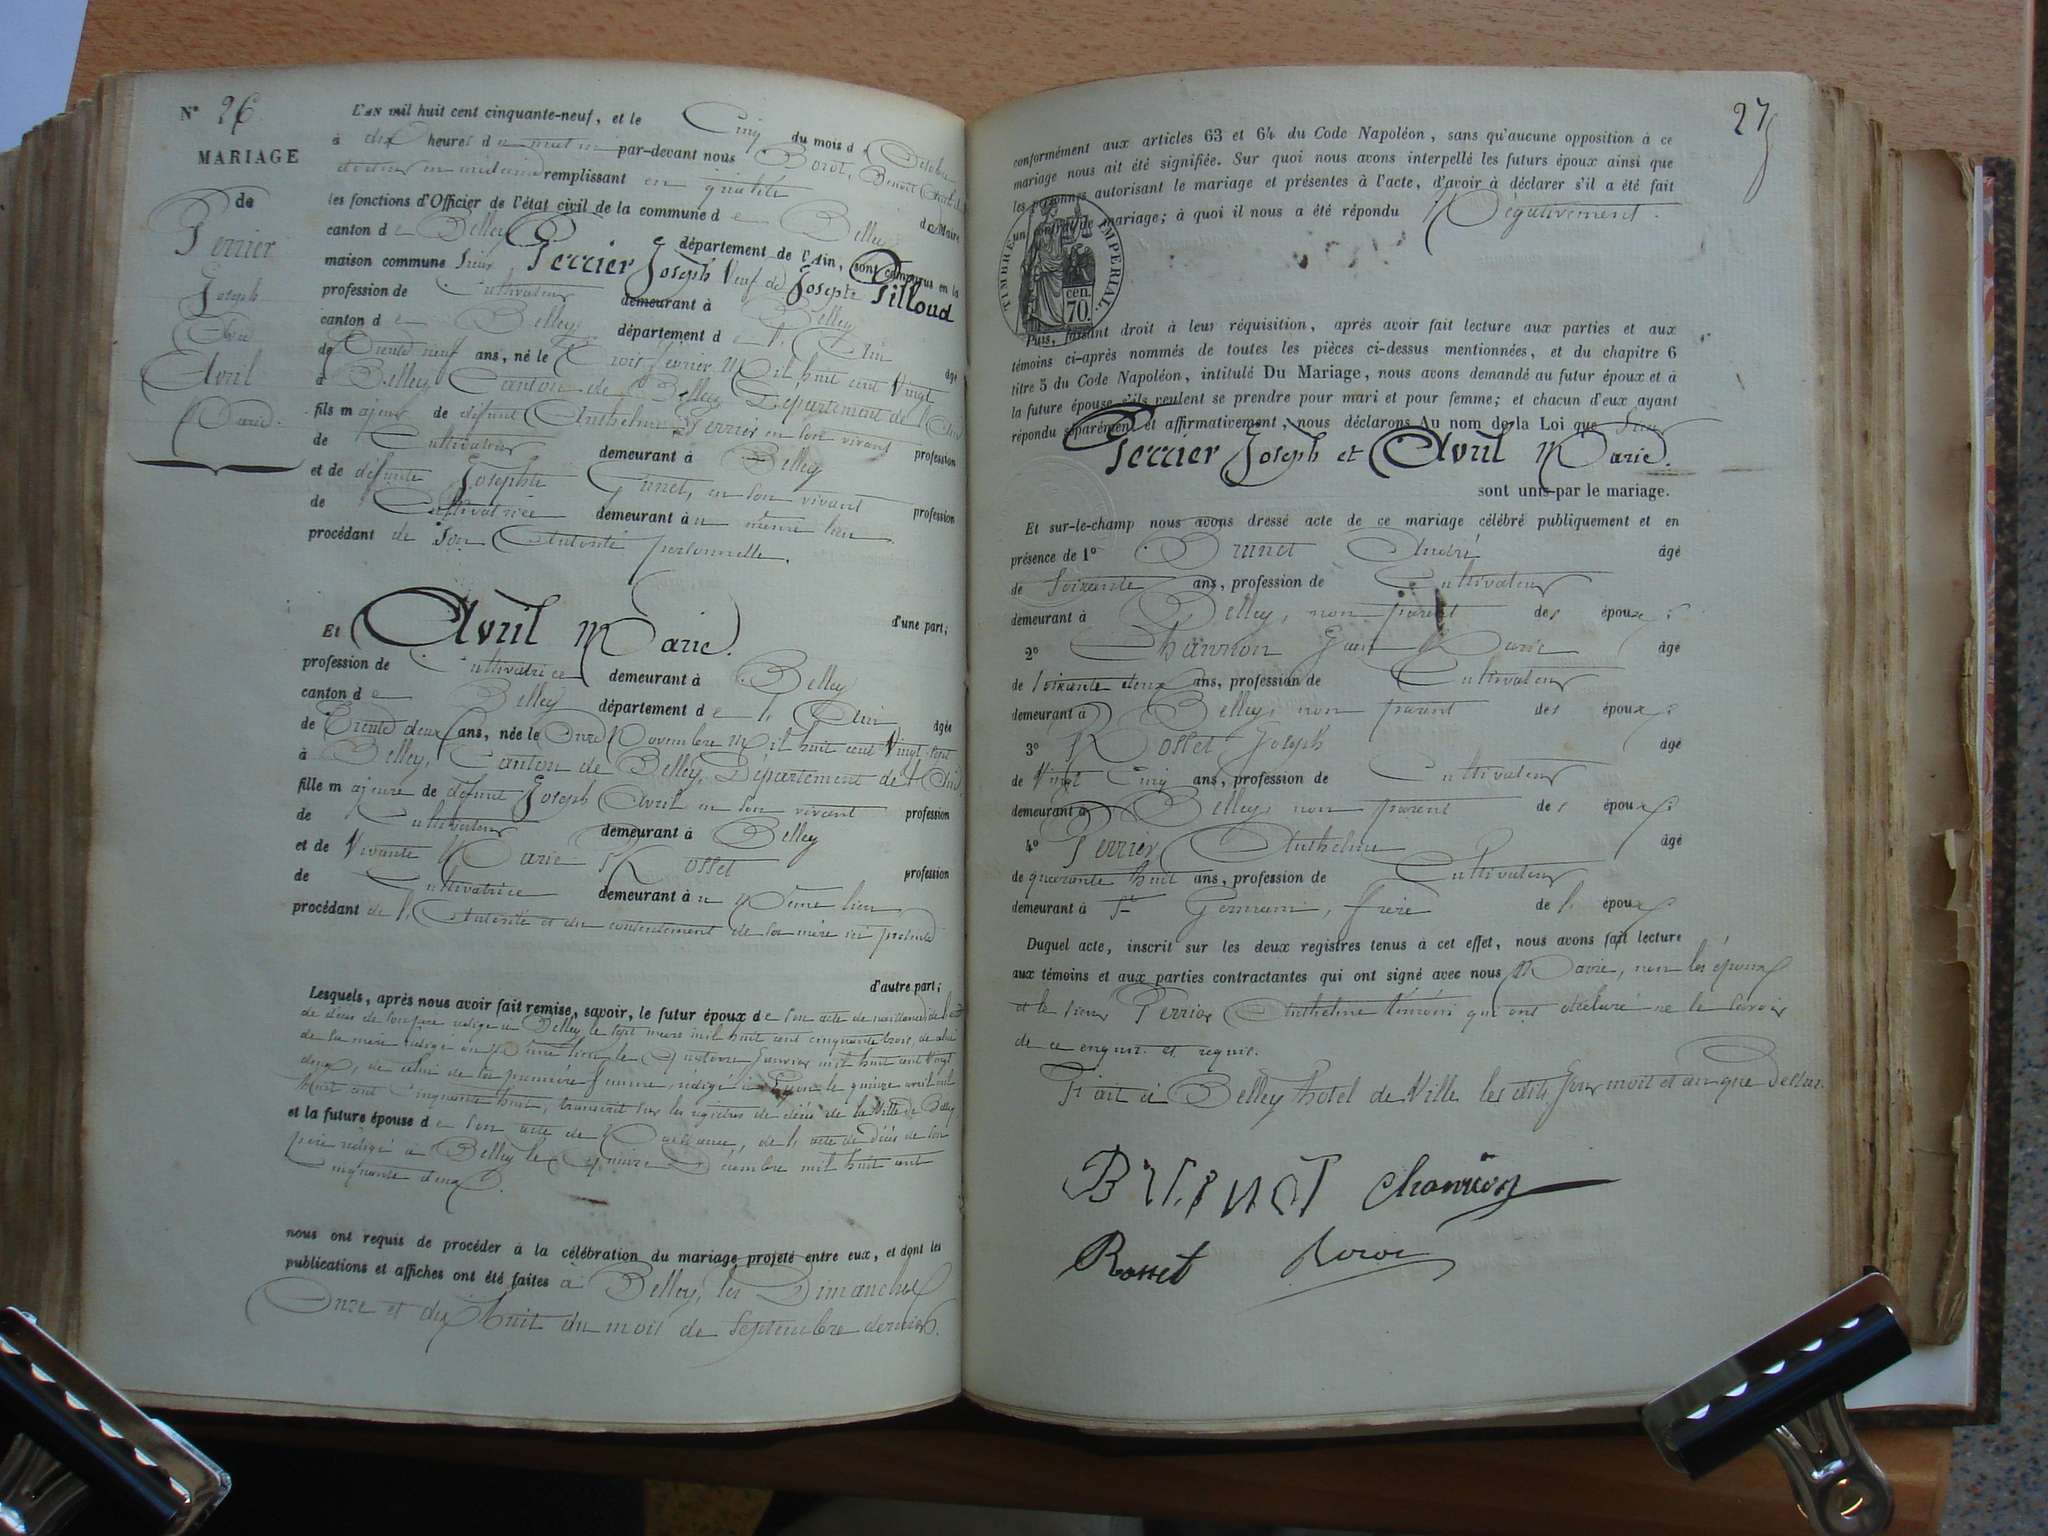 N° 26
MARIAGE
de
Perrier
Joseph
Avril
Marie.
L'AN mil huit cent cinquante-neuf, et le Cinq du mois d'Octobre
à dix heures du matin par-devant nous Borot, Benoit
docteur en médecine remplissant en qualité de Maire
les fonctions d'Officier de l'état civil de la commune de Belley
canton de Belley département de l'Ain, sont comparus en la
maison commune Sieur Perrier Joseph Veuf de Josephte Pilloud
profession de Cultivateur demeurant à Belley
canton de Belley département de l'Ain âgé
de Trente neuf ans, né le Trois février Mil huit cent Vingt
à Belley Canton de Belley Département de l'Ain
fils majeur de défunt Anthelme Perrier en son vivant profession
de Cultivateur demeurant à Belley
et de défunte Josephte en son vivant profession
de Cultivatrice demeurant au même lieu
procédant de Son Autorité personnelle.
d'une part;
Et Avril Marie.
profession de Cultivatrice demeurant à Belley
canton de Belley département de l'Ain âgée
de Trente deux ans, née le Onze Novembre Mil huit cent Vingt sept
à Belley, Canton de Belley, Département de l'Ain,
fille majeure de défunt Joseph Avril en son vivant profession
de Cultivateur demeurant à Belley
et de Vivante Marie Rosset profession
de Cultivatrice demeurant au Même lieu
procédant de l'Autorité et du consentement de sa mère ici présente
d'autre part;
Lesquels, après nous avoir fait remise, savoir, le futur époux de son acte de naissance, de l'acte
de décès de son père rédigé à Belley le sept mars mil huit cent cinquante trois, de celui
de sa mère rédigé au même lieu le Quatorze Janvier mil huit cent vingt
deux, de celui de sa première femme, rédigé à Lyon le quinze avril mil
huit cent Cinquante huit, transcrit sur les registres de décès de la Ville de Belley
et la future épouse de son acte de Naissance, de l'acte de décès de son
père rédigé à Belley le Quinze Décembre mil huit cent
Cinquante deux.
nous ont requis de procéder à la célébration du mariage projeté entre eux, et dont les
publications et affiches ont été faites à Belley, les Dimanches
Onze et dix huit du mois de Septembre dernier.
27
conformément aux articles 63 et 64 du Code Napoléon, sans qu'aucune opposition à ce
mariage nous ait été signifiée. Sur quoi nous avons interpellé les futurs époux ainsi que
les personnes autorisant le mariage et présentes à l'acte, d'avoir à déclarer s'il a été fait
un contrat de mariage; à quoi il nous a été répondu Négativement.
TIMBRE IMPERIAL.
cen.
70.
Puis, faisant droit à leur réquisition, après avoir fait lecture aux parties et aux
témoins ci-après nommés de toutes les pièces ci-dessus mentionnées, et du chapitre 6
titre 5 du Code Napoléon, intitulé Du Mariage, nous avons demandé au futur époux et à
la future épouse s'ils veulent se prendre pour mari et pour femme; et chacun d'eux ayant
répondu séparément et affirmativement, nous déclarons Au nom de la Loi que Sieur
Perrier Joseph et Avril Marie.
sont unis par le mariage.
Et sur-le-champ nous avons dressé acte de ce mariage célébré publiquement et en
présence de 1° Brunet André âgé
de Soixante ans, profession de Cultivateur
demeurant à Belley, non parent des époux;
2° Charvon Jean Marie âgé
de Soixante deux ans, profession de Cultivateur
demeurant à Belley, non parent des époux;
3° Rosset Joseph âgé
de Vingt Cinq ans, profession de Cultivateur
demeurant à Belley, non parent des époux;
4° Perrier Anthelme âgé
de quarante huit ans, profession de Cultivateur
demeurant à St Germain, frère de l'époux.
Duquel acte, inscrit sur les deux registres tenus à cet effet, nous avons fait lecture
aux témoins et aux parties contractantes qui ont signé avec nous Maire, non les époux
et le sieur Perrier Anthelme témoin qui ont déclaré ne le savoir
de ce enquis et requis.
Fait à Belley hôtel de Ville les dits Jour mois et an que dessus.
Brunet Charvon
Rosset Borot